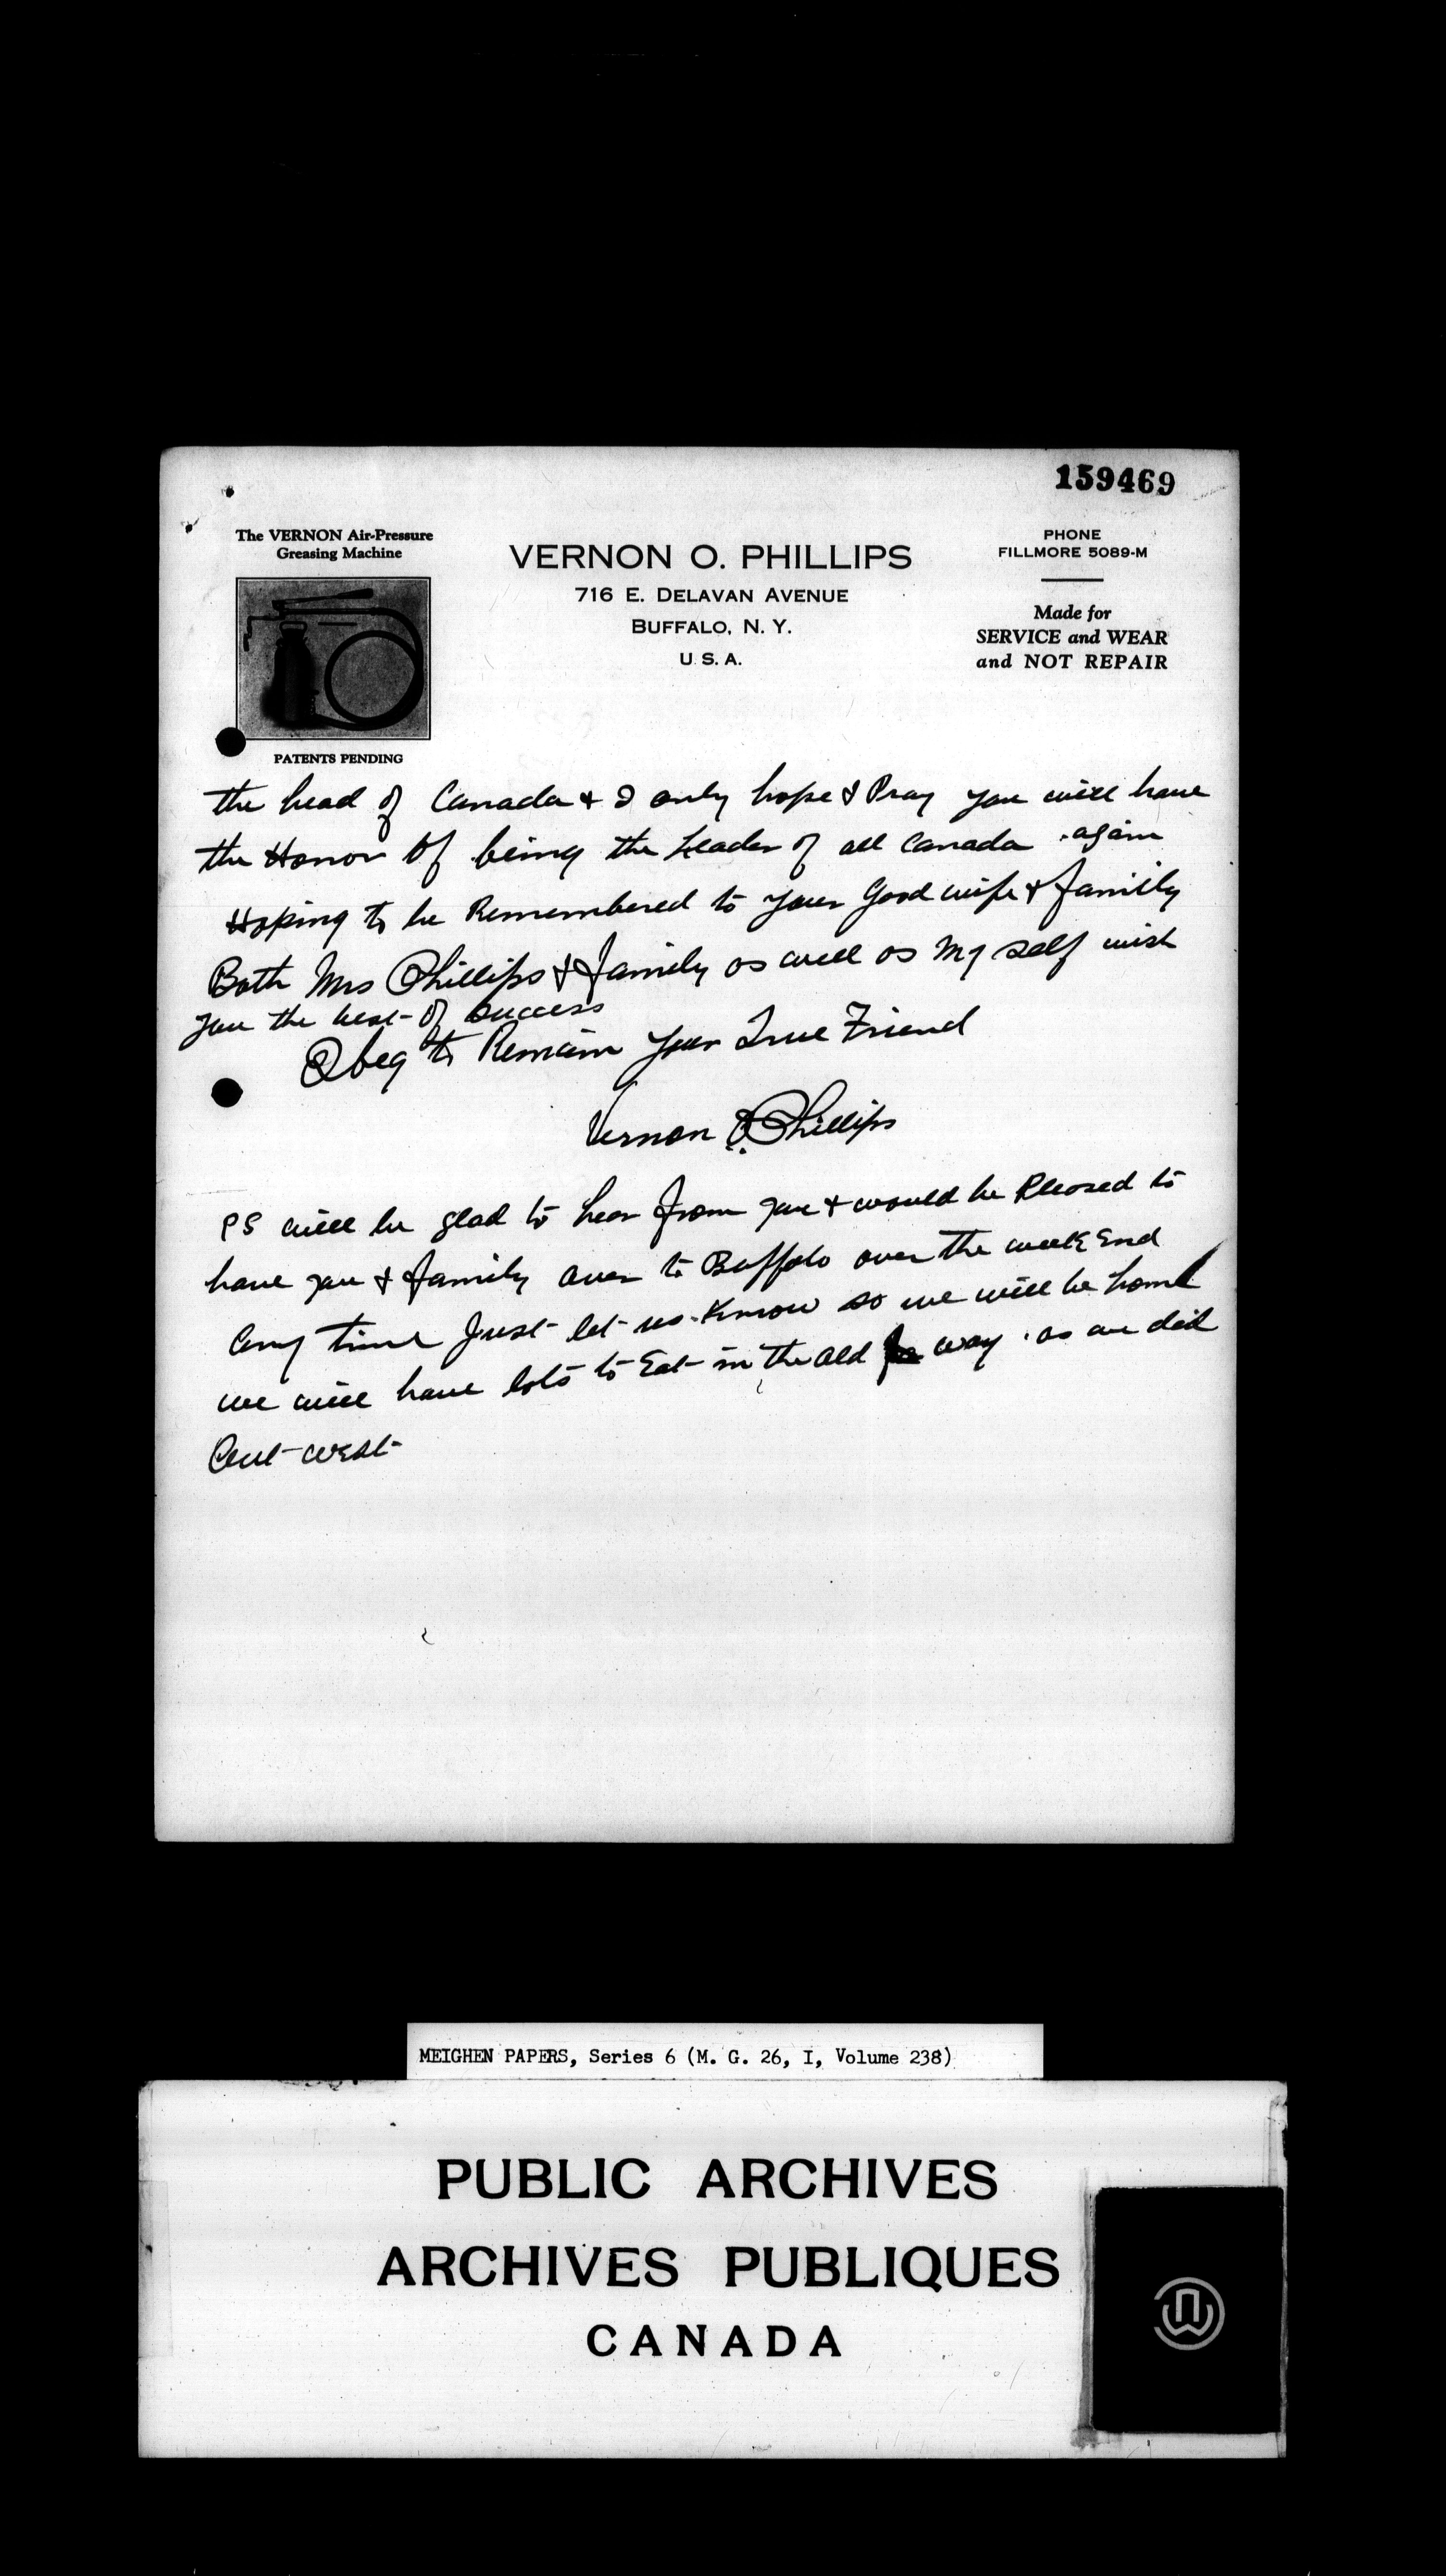 159469
The VERNON Air-Pressure
Greasing Machine
PATENTS PENDING
VERNON O. PHILLIPS
716 E. DELAVAN AVENUE
BUFFALO, N. Y.
U. S. A.
PHONE
FILLMORE 5089-M
Made for
SERVICE and WEAR
and NOT REPAIR
the head of Canada & I only hope & Pray you will have
the Honor Of being the Leader of all Canada again
Hoping to be Remembered to your Good wife & familly
Both Mrs Phillips & family as well as my self wish
you the best of success
I beg to Remain your True Friend
Vernon O. Phillips
PS will be glad to hear from you & would be Pleased to
have you & family over to Buffalo over the week End
any time Just let us Know so we will be home
we will have lots to Eat in the old way as we did
out west
MEIGHEN PAPERS, Series 6 (M. G. 26, I, Volume 238)
PUBLIC ARCHIVES
ARCHIVES PUBLIQUES
CANADA